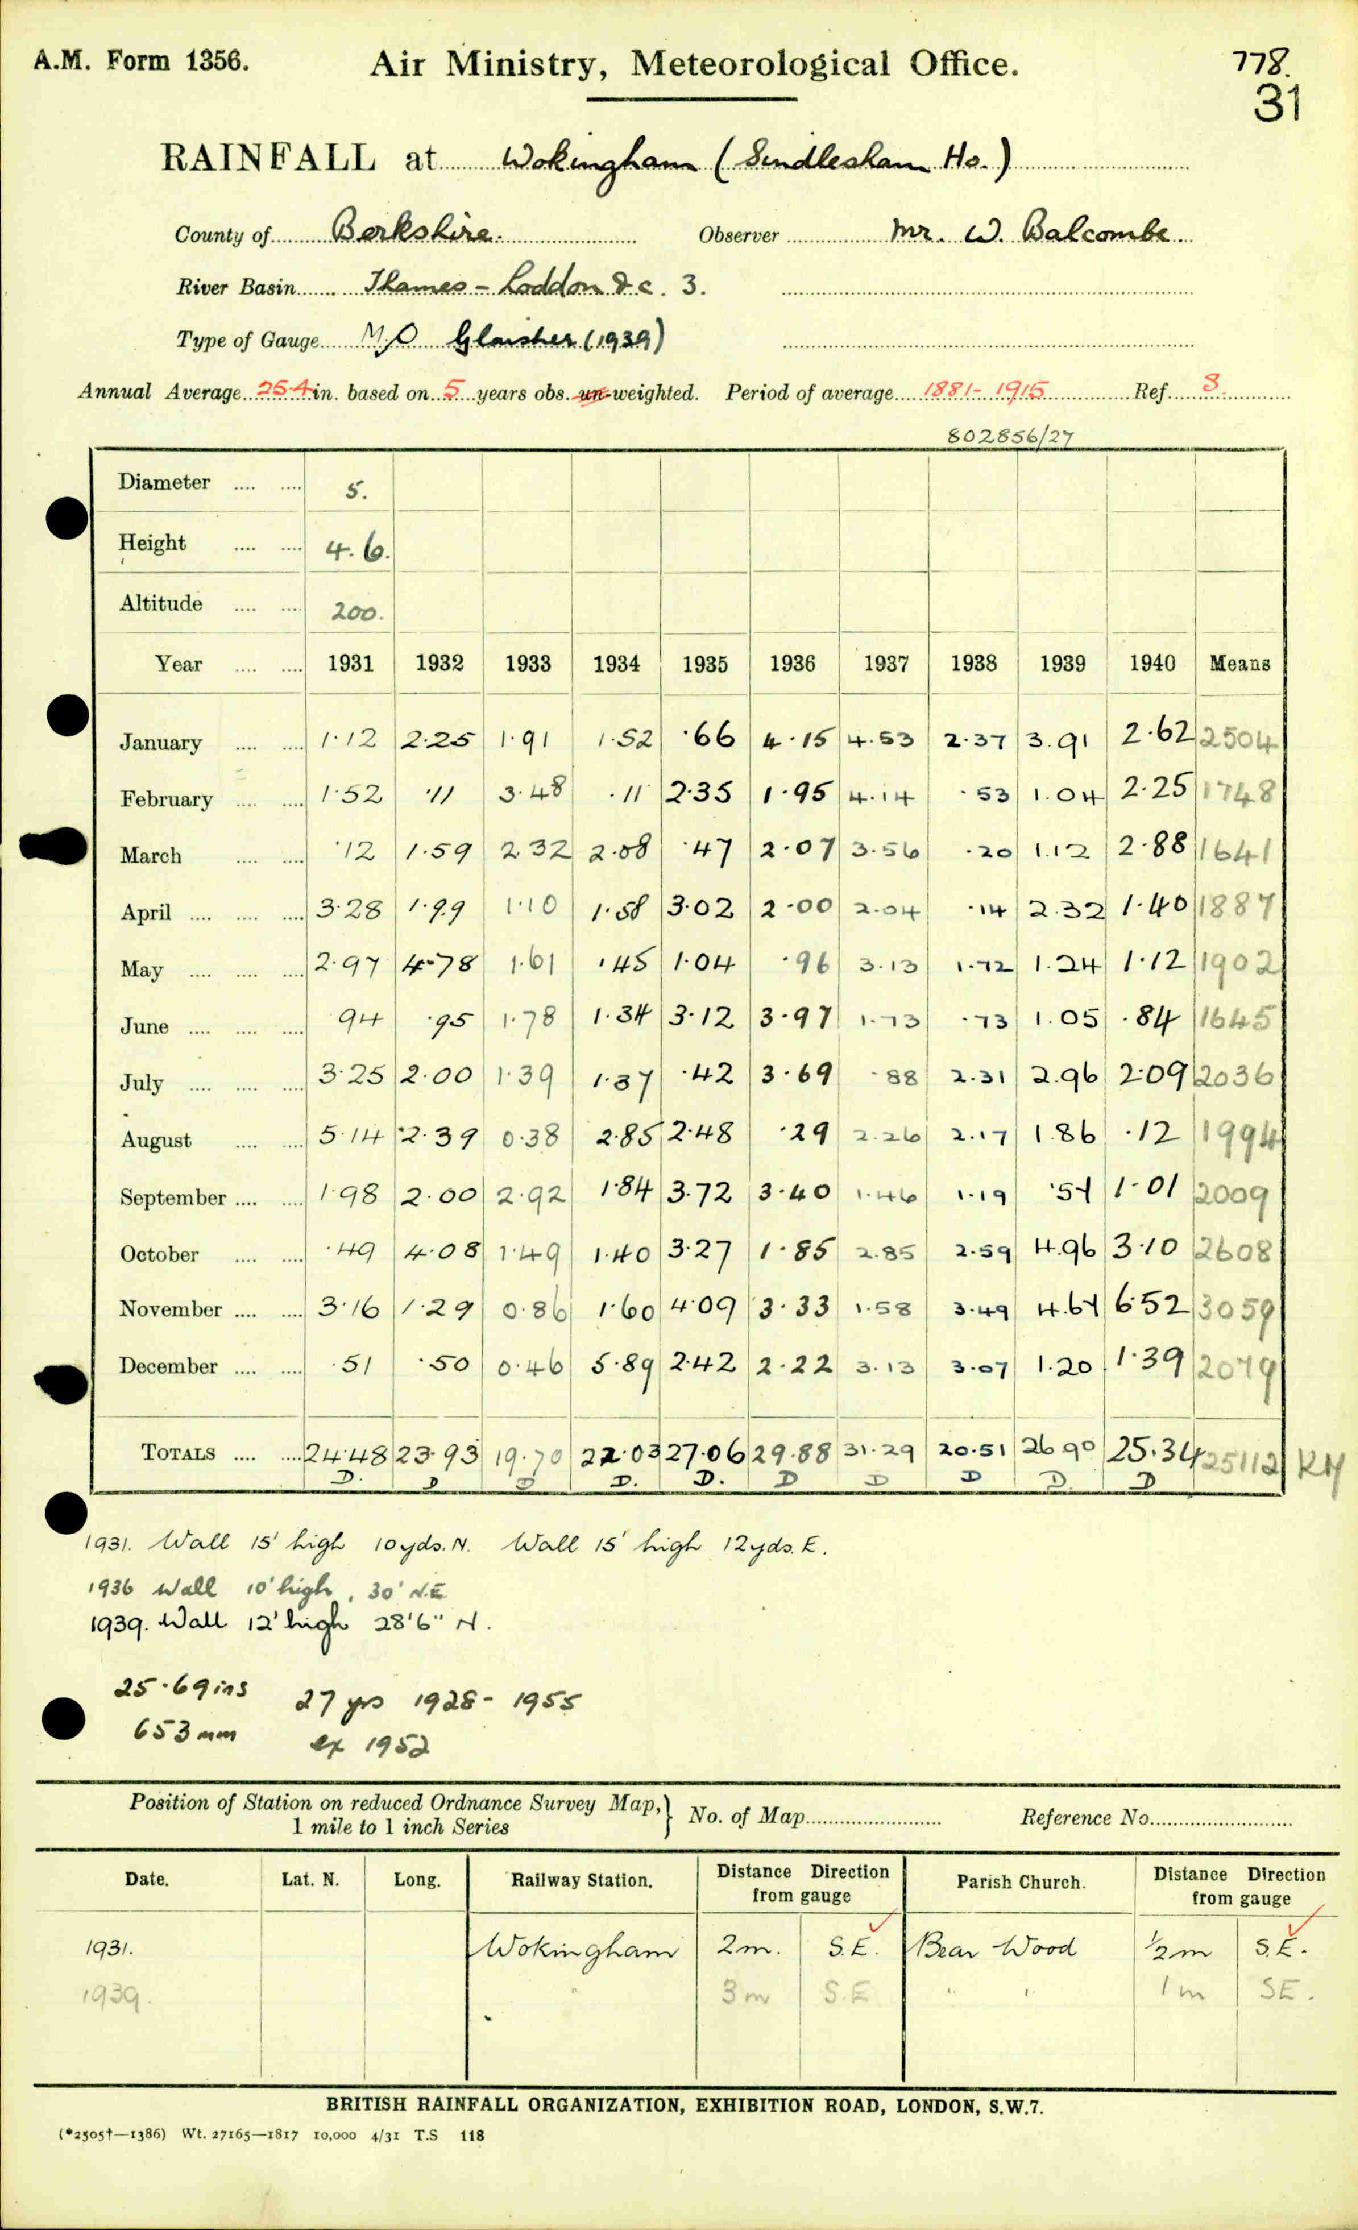 A.M. Form 1356. Air Ministry, Meteorological Office. 778.
31
RAINFALL at Wokingham (Sindlesham Ho.)
County of Berkshire. Observer Mr. W. Balcombe
River Basin Thames - Loddon &c. 3.
Type of Gauge M.O Glaisher (1939)
Annual Average 25.4 in. based on 5 years obs. un-weighted. Period of average 1881-1915 Ref. S.
802856/27
Diameter 5.
Height 4.6.
Altitude 200.
Year 1931 1932 1933 1934 1935 1936 1937 1938 1939 1940 Means
January 1.12 2.25 1.91 1.52 .66 4.15 4.53 2.37 3.91 2.62 2504
February 1.52 .11 3.48 .11 2.35 1.95 4.14 .53 1.04 2.25 1748
March .12 1.59 2.32 2.08 .47 2.07 3.56 .20 1.12 2.88 1641
April 3.28 1.99 1.10 1.58 3.02 2.00 2.04 .14 2.32 1.40 1887
May 2.97 4.78 1.61 .45 1.04 .96 3.13 1.72 1.24 1.12 1902
June 94 .95 1.78 1.34 3.12 3.97 1.73 .73 1.05 .84 1645
July 3.25 2.00 1.39 1.37 .42 3.69 .88 2.31 2.96 2.09 2036
August 5.14 2.39 0.38 2.85 2.48 .29 2.26 2.17 1.86 .12 1994
September 1.98 2.00 2.92 1.84 3.72 3.40 1.46 1.19 .57 1.01 2009
October .49 4.08 1.49 1.40 3.27 1.85 2.85 2.59 4.96 3.10 2608
November 3.16 1.29 0.86 1.60 4.09 3.33 1.58 3.49 4.67 6.52 3059
December .51 .50 0.46 5.89 2.42 2.22 3.13 3.07 1.20 1.39 2079
TOTALS 24.48 23.93 19.70 22.03 27.06 29.88 31.29 20.51 26.90 25.34 25112 KM
D. D D D. D. D D D D. D
1931. Wall 15' high 10yds. N. Wall 15' high 12yds. E.
1936 Wall 10' high, 30' N.E
1939. Wall 12' high 28'6" N.
25.69ins 27 yrs 1928-1955
653mm ex 1952
Position of Station on reduced Ordnance Survey Map, 1 mile to 1 inch Series } No. of Map Reference No.
Date. Lat. N. Long. Railway Station. Distance Direction from gauge Parish Church. Distance Direction from gauge
1931. Wokingham 2m. S.E. Bear Wood ½m S.E.
1939. " 3m S.E " " 1m SE.
BRITISH RAINFALL ORGANIZATION, EXHIBITION ROAD, LONDON, S.W.7.
(*2505†—1386) Wt. 27165—1817 10,000 4/31 T.S 118